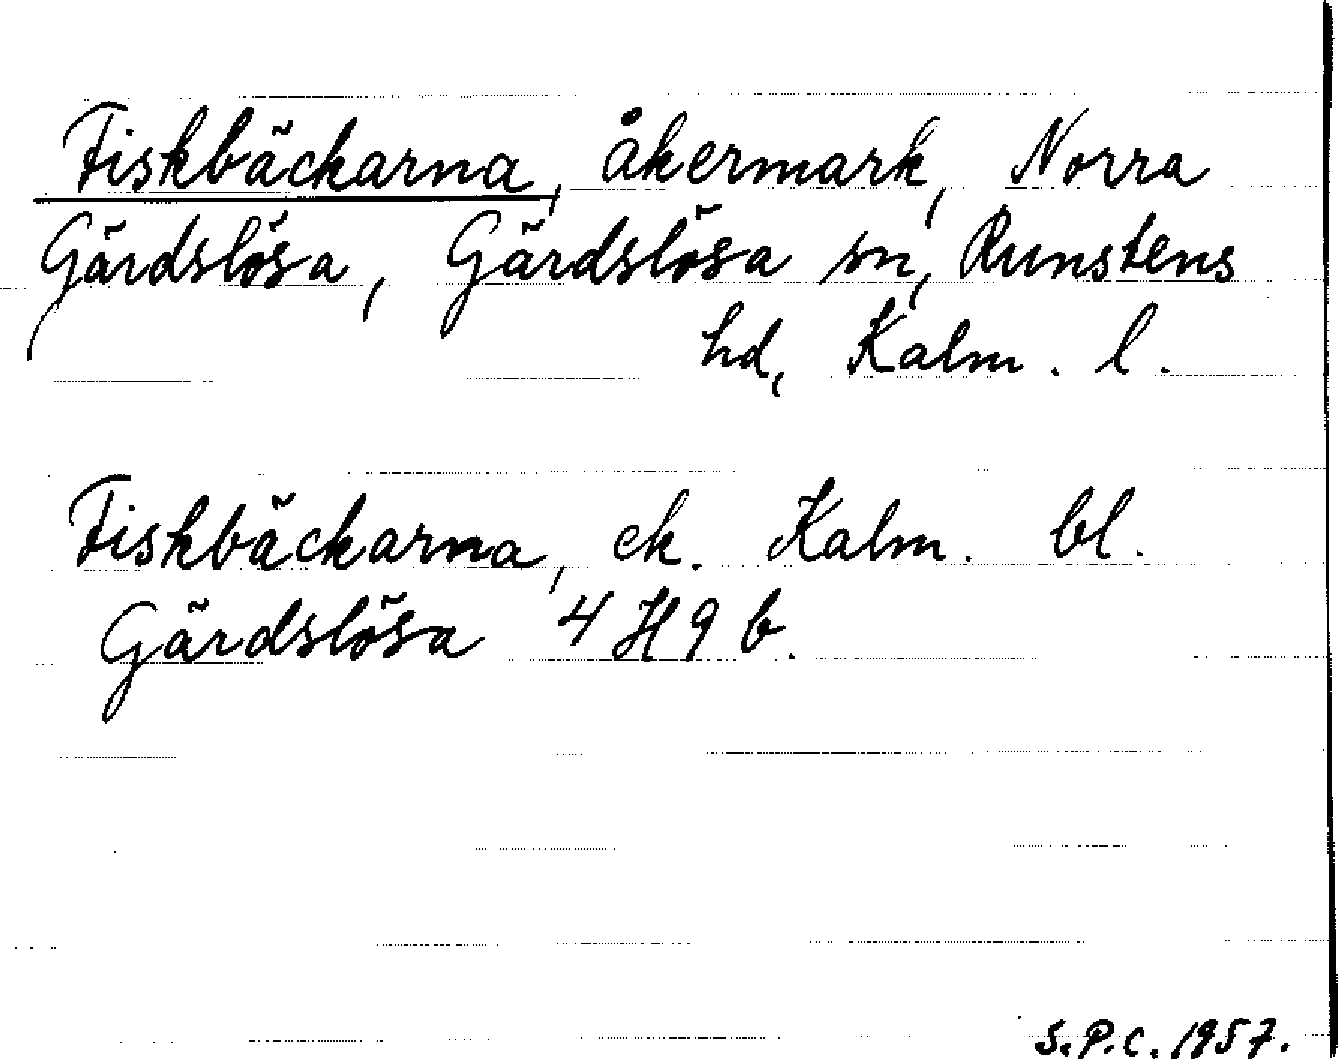 Fiskbäckarna, åkermark, Norra
Gärdslösa, Gärdslösa sn, Runstens
hd, Kalm. l.
Fiskbäckarna, ek. Kalm. bl.
Gärdslösa 4 H 9 b.
S.P.C. 1957.